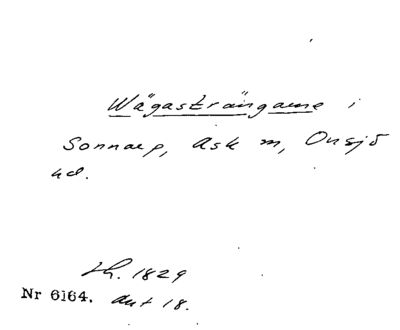 Wägasträngarne i
Sonnarp, Ask m, Onsjö
hd.
sk. 1829
Nr 6164. akt 18.